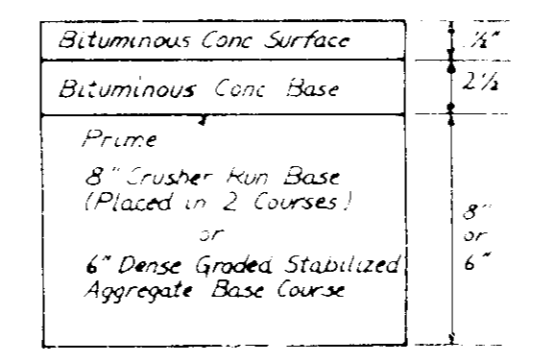 Bituminous Conc Surface
½"
Bituminous Conc Base
2½
Prime
8" Crusher Run Base
(Placed in 2 Courses)
or
6" Dense Graded Stabilized
Aggregate Base Course
8"
or
6"